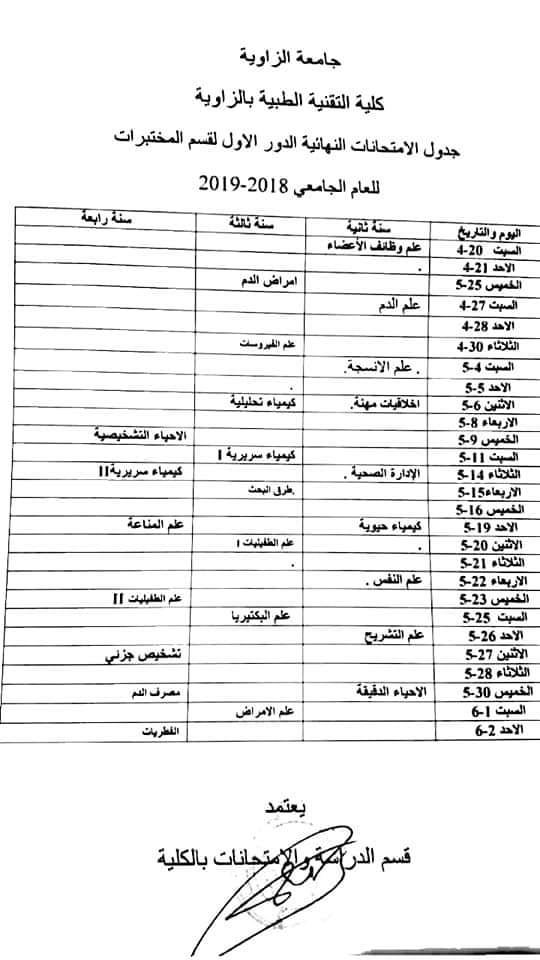 جامعة الزاوية
كلية التقنية الطبية بالزاوية
جدول الامتحانات النهائية الدور الاول لقسم المختبرات
للعام الجامعي 2018-2019
اليوم والتاريخ سنة ثانية سنة ثالثة سنة رابعة
السبت 20-4 علم وظائف الأعضاء
الاحد 21-4 .
الخميس 25-5 امراض الدم
السبت 27-4 علم الدم
الاحد 28-4
الثلاثاء 30-4 علم الفيروسات
السبت 4-5 . علم الانسجة.
الاحد 5-5 .
الاثنين 6-5 اخلاقيات مهنة. كيمياء تحليلية
الاربعاء 8-5
الخميس 9-5 الاحياء التشخيصية
السبت 11-5 كيمياء سريرية I
الثلاثاء 14-5 الإدارة الصحية . كيمياء سريرية II
الاربعاء 15-5 .طرق البحث
الخميس 16-5
الاحد 19-5 كيمياء حيوية علم المناعة
الاثنين 20-5 . علم الطفيليات I
الثلاثاء 21-5 .
الاربعاء 22-5 علم النفس .
الخميس 23-5 علم الطفيليات II
السبت 25-5 علم البكتيريا
الاحد 26-5 علم التشريح
الاثنين 27-5 تشخيص جزئي
الثلاثاء 28-5
الخميس 30-5 الاحياء الدقيقة مصرف الدم
السبت 1-6 علم الامراض
الاحد 2-6 الفطريات
يعتمد
قسم الدراسة والامتحانات بالكلية